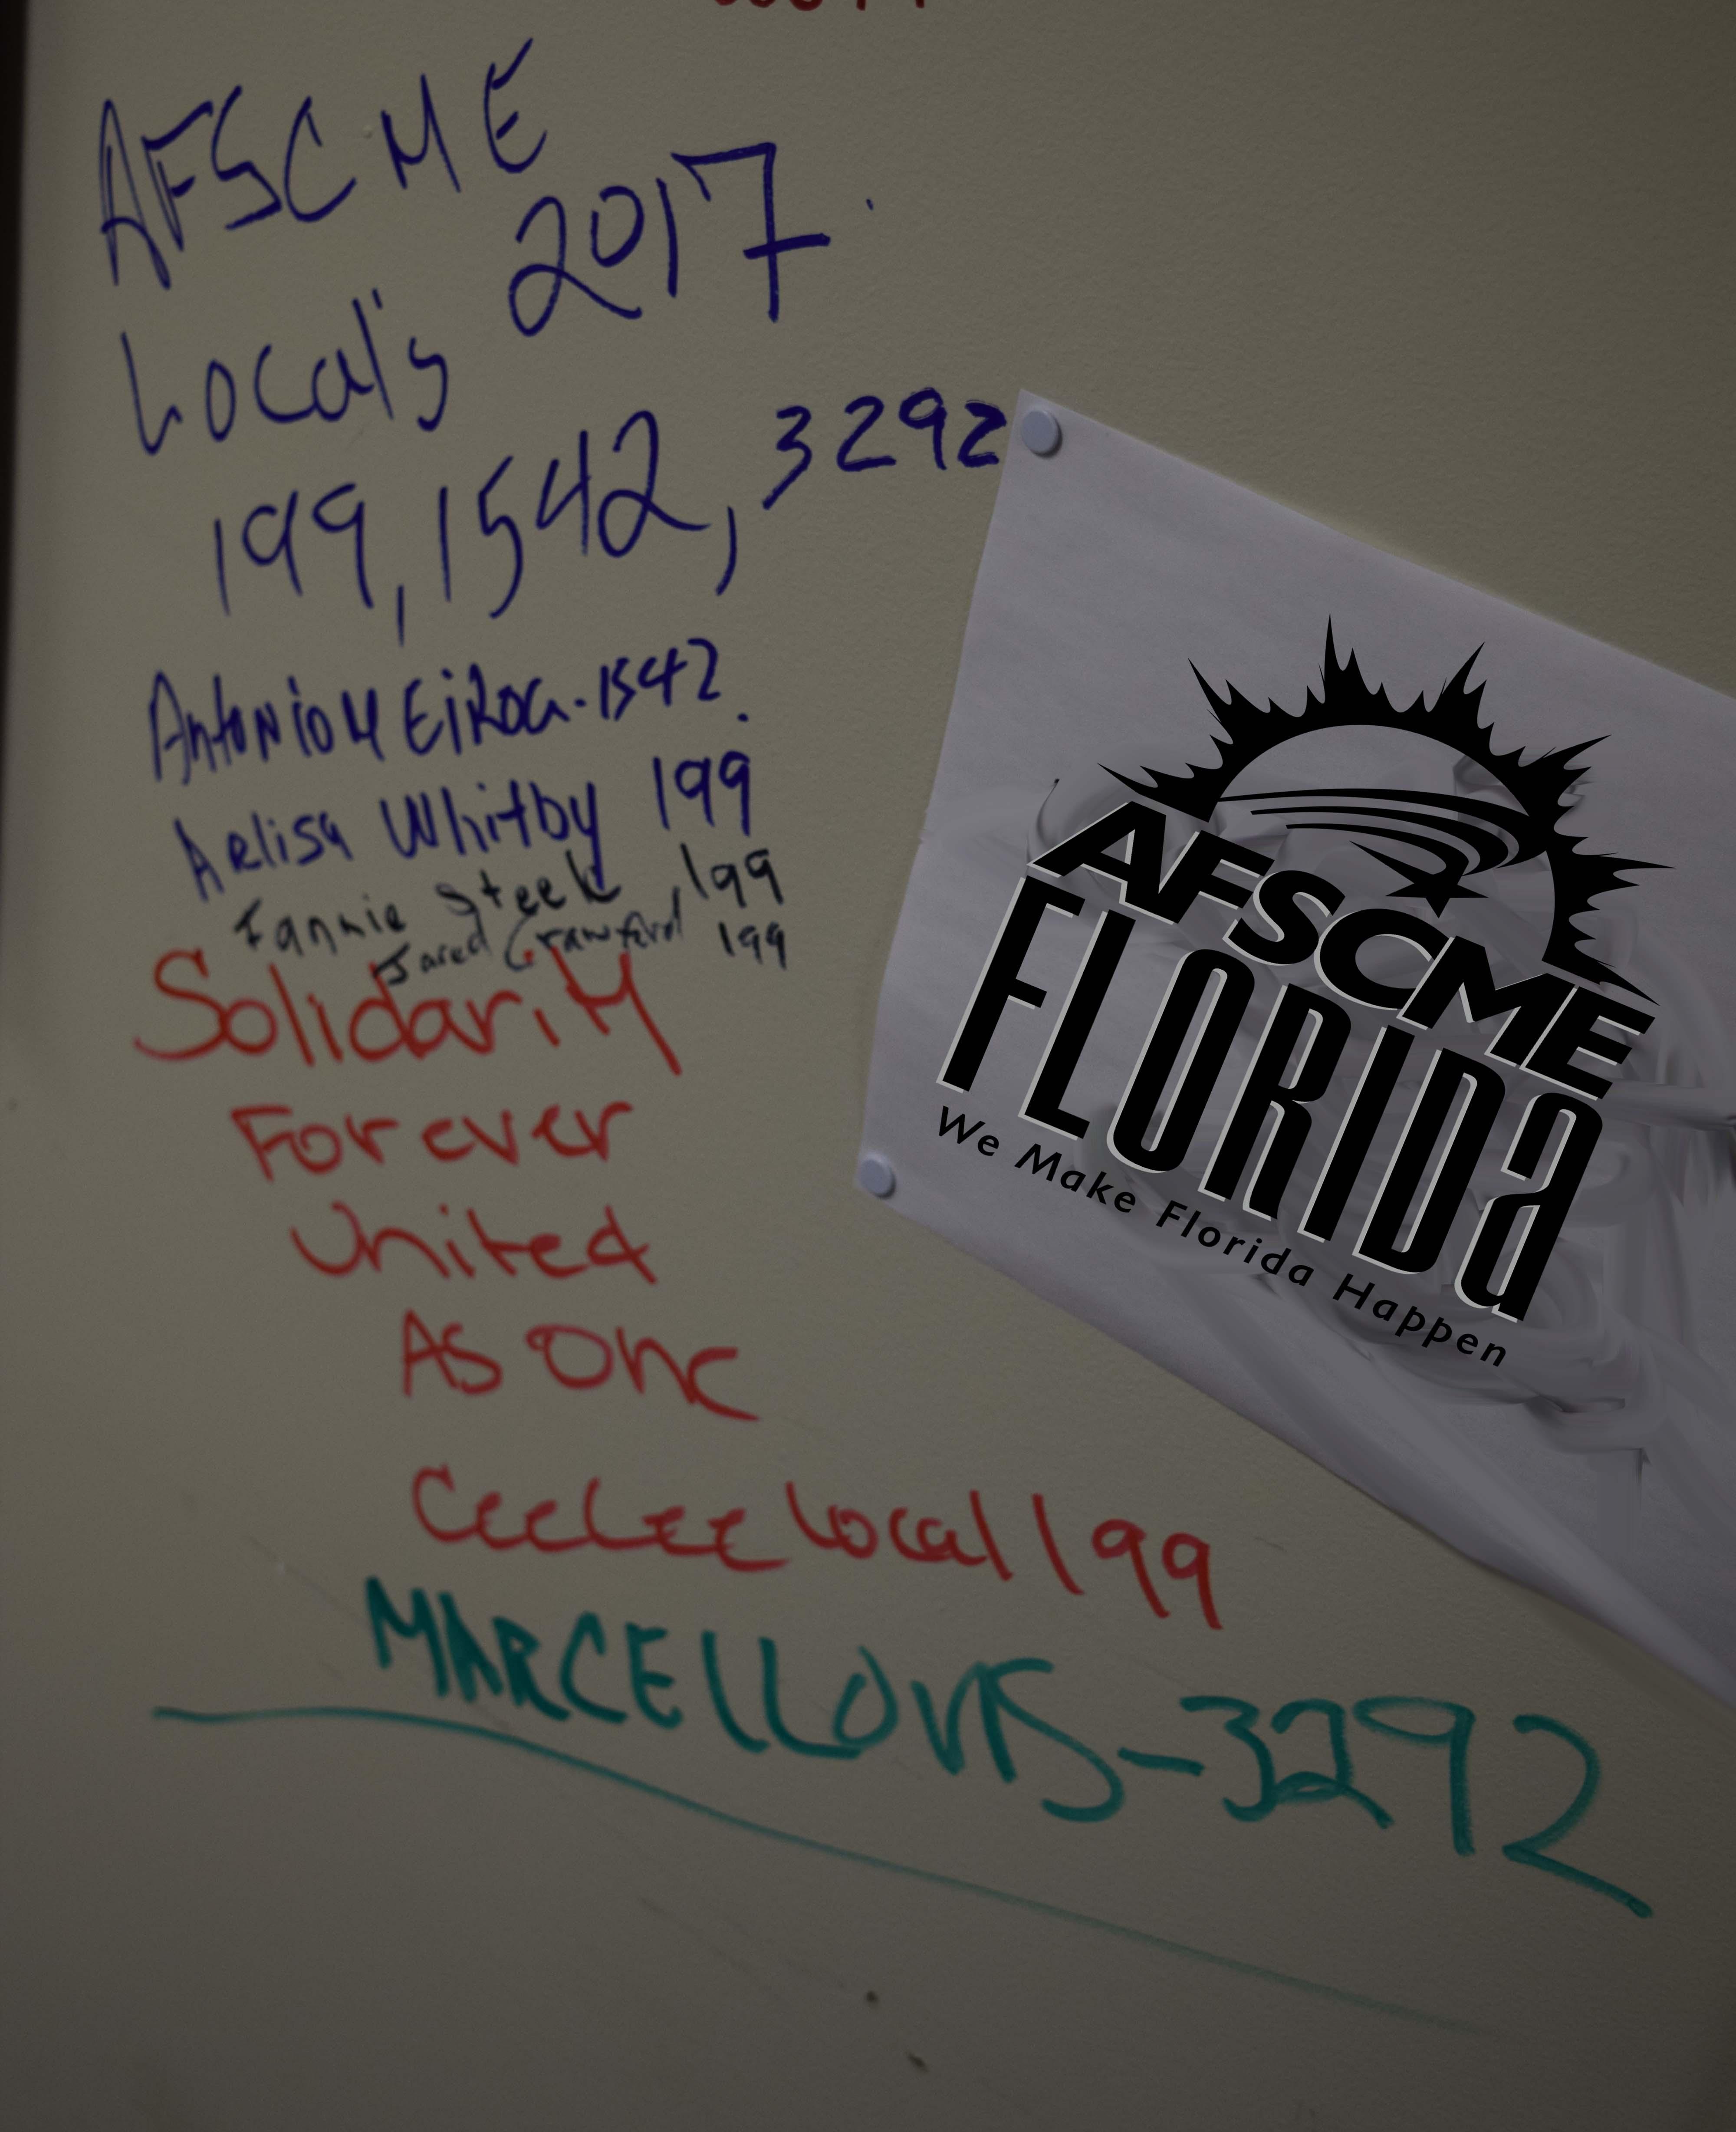 AFSCME
2017
Local's
199, 1542, 3292
Antonio M Eiroa. 1542.
Arlisa Whitby 199
Fannie Steele 199
Jared Crawford 199
Solidarity
Forever
United
As One
CeeLee Local 199
MARCELLOUS-3292
AFSCME
FLORIDa
We Make Florida Happen